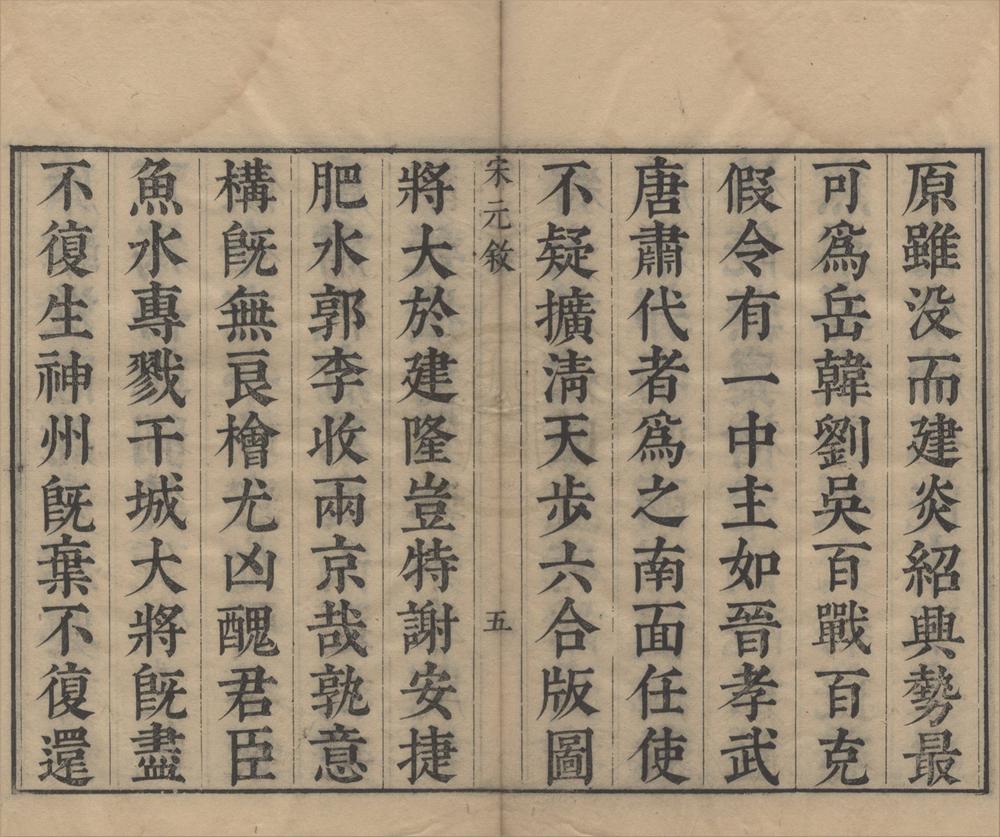 原雖没而建炎紹興勢最
可爲岳韓劉吳百戰百克
假令有一中主如晉孝武
唐肅代者爲之南面任使
不疑擴清天步六合版圖
宋元敘
五
將大於建隆豈特謝安捷
肥水郭李收兩京哉孰意
構旣無良檜尤凶醜君臣
魚水專戮干城大將旣盡
不復生神州旣棄不復還